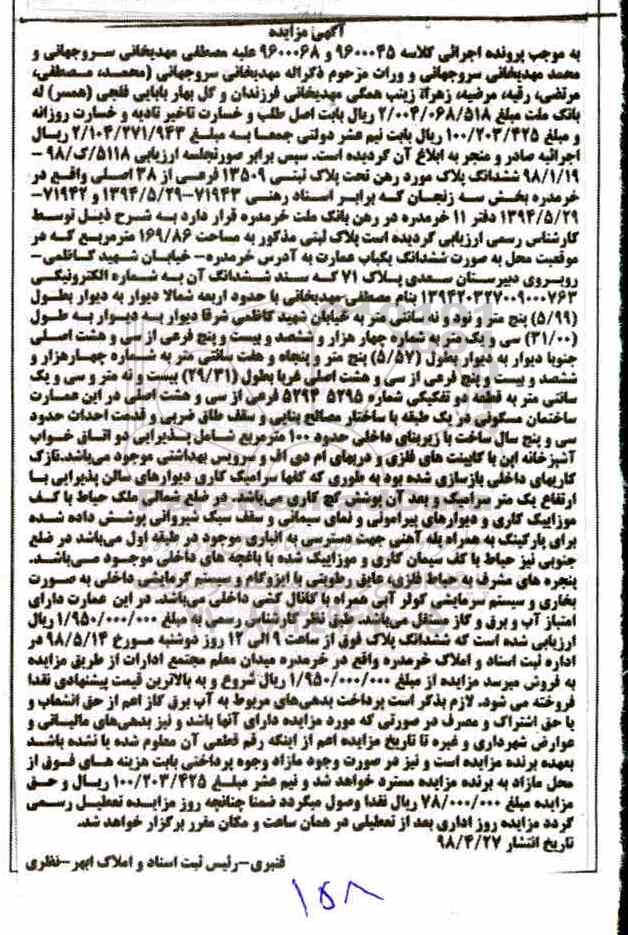 آگهی مزایده
به موجب پرونده اجرائی کلاسه ۹۶۰۰۰۴۵ و ۹۶۰۰۰۶۸ علیه مصطفی مهدیخانی سروجهانی و
محمد مهدیخانی سروجهانی و وراث مرحوم ذکراله مهدیخانی سروجهانی (محمد، مصطفی،
مرتضی، رقیه، مرضیه، زهرا، زینب همگی مهدیخانی فرزندان و گل بهار بابایی قلجی (همسر) له
بانک ملت مبلغ ۲/۰۰۴/۰۶۸/۵۱۸ ریال بابت اصل طلب و خسارت تاخیر تادیه و خسارت روزانه
و مبلغ ۱۰۰/۲۰۳/۴۲۵ ریال بابت نیم عشر دولتی جمعا به مبلغ ۲/۱۰۴/۲۷۱/۹۴۳ ریال
اجرائیه صادر و منجر به ابلاغ آن گردیده است. سپس برابر صورتجلسه ارزیابی ۵۱۱۸/ک/۹۸-
۹۸/۱/۱۹ ششدانگ پلاک مورد رهن تحت پلاک ثبتی ۱۳۵۰۹ فرعی از ۳۸ اصلی واقع در
خرمدره بخش سه زنجان که برابر اسناد رهنی ۷۱۹۴۳-۱۳۹۴/۵/۲۹ و ۷۱۹۴۲-
۱۳۹۴/۵/۲۹ دفتر ۱۱ خرمدره در رهن بانک ملت خرمدره قرار دارد به شرح ذیل توسط
کارشناس رسمی ارزیابی گردیده است پلاک ثبتی مذکور به مساحت ۱۶۹/۸۶ مترمربع که در
موقعیت محل به صورت ششدانگ یکباب عمارت به آدرس خرمدره- خیابان شهید کاظمی-
روبروی دبیرستان سعدی پلاک ۷۱ که سند ششدانگ آن به شماره الکترونیکی
۱۳۹۴۲۰۳۲۷۰۰۹۰۰۰۷۶۳ بنام مصطفی مهدیخانی با حدود اربعه شمالا دیوار به دیوار بطول
(۵/۹۹) پنج متر و نود و نه سانتی متر به خیابان شهید کاظمی شرقا دیوار به دیوار به طول
(۳۱/۰۰) سی و یک متر به شماره چهار هزار و ششصد و بیست و پنج فرعی از سی و هشت اصلی
جنوبا دیوار به دیوار بطول (۵/۵۷) پنج متر و پنجاه و هفت سانتی متر به شماره چهارهزار و
ششصد و بیست و پنج فرعی از سی و هشت اصلی غربا بطول (۲۹/۳۱) بیست و نه متر و سی و یک
سانتی متر به قطعه دو تفکیکی شماره ۵۲۹۵ ۵۲۹۴ فرعی از سی و هشت اصلی در این عمارت
ساختمان مسکونی در یک طبقه با ساختار مصالح بنایی و سقف طاق ضربی و قدمت احداث حدود
سی و پنج سال ساخت با زیربنای داخلی حدود ۱۰۰ مترمربع شامل پذیرایی دو اتاق خواب
آشپزخانه اپن با کابینت های فلزی و دربهای ام دی اف و سرویس بهداشتی موجود می‌باشد. نازک
کاریهای داخلی بازسازی شده بود به طوری که کفها سرامیک کاری دیوارهای سالن پذیرایی با
ارتفاع یک متر سرامیک و بعد آن پوشش گچ کاری می‌باشد. در ضلع شمالی ملک حیاط با کف
موزاییک کاری و دیوارهای پیرامونی و نمای سیمانی و سقف سبک شیروانی پوشش داده شده
برای پارکینگ به همراه پله آهنی جهت دسترسی به انباری موجود در طبقه اول می‌باشد در ضلع
جنوبی نیز حیاط با کف سیمان کاری و موزاییک شده با باغچه های داخلی موجود می‌باشد.
پنجره های مشرف به حیاط فلزی، عایق رطوبتی با ایزوگام و سیستم گرمایشی داخلی به صورت
بخاری و سیستم سرمایشی کولر آبی همراه با کانال کشی داخلی می‌باشد. در این عمارت دارای
امتیاز آب و برق و گاز مستقل می‌باشد. طبق نظر کارشناس رسمی به مبلغ ۱/۹۵۰/۰۰۰/۰۰۰ ریال
ارزیابی شده است که ششدانگ پلاک فوق از ساعت ۹ الی ۱۲ روز دوشنبه مورخ ۹۸/۵/۱۴ در
اداره ثبت اسناد و املاک خرمدره واقع در خرمدره میدان معلم مجتمع ادارات از طریق مزایده
به فروش میرسد مزایده از مبلغ ۱/۹۵۰/۰۰۰/۰۰۰ ریال شروع و به بالاترین قیمت پیشنهادی نقدا
فروخته می شود. لازم بذکر است پرداخت بدهی‌های مربوط به آب برق گاز اعم از حق انشعاب و
یا حق اشتراک و مصرف در صورتی که مورد مزایده دارای آنها باشد و نیز بدهی‌های مالیاتی و
عوارض شهرداری و غیره تا تاریخ مزایده اعم از اینکه رقم قطعی آن معلوم شده یا نشده باشد
بعهده برنده مزایده است و نیز در صورت وجود مازاد وجوه پرداختی بابت هزینه های فوق از
محل مازاد به برنده مزایده مسترد خواهد شد و نیم عشر مبلغ ۱۰۰/۲۰۳/۴۲۵ ریال و حق
مزایده مبلغ ۷۸/۰۰۰/۰۰۰ ریال نقدا وصول میگردد ضمنا چنانچه روز مزایده تعطیل رسمی
گردد مزایده روز اداری بعد از تعطیلی در همان ساعت و مکان مقرر برگزار خواهد شد.
تاریخ انتشار ۹۸/۴/۲۷
قنبری-رئیس ثبت اسناد و املاک ابهر-نظری
۱۵۸